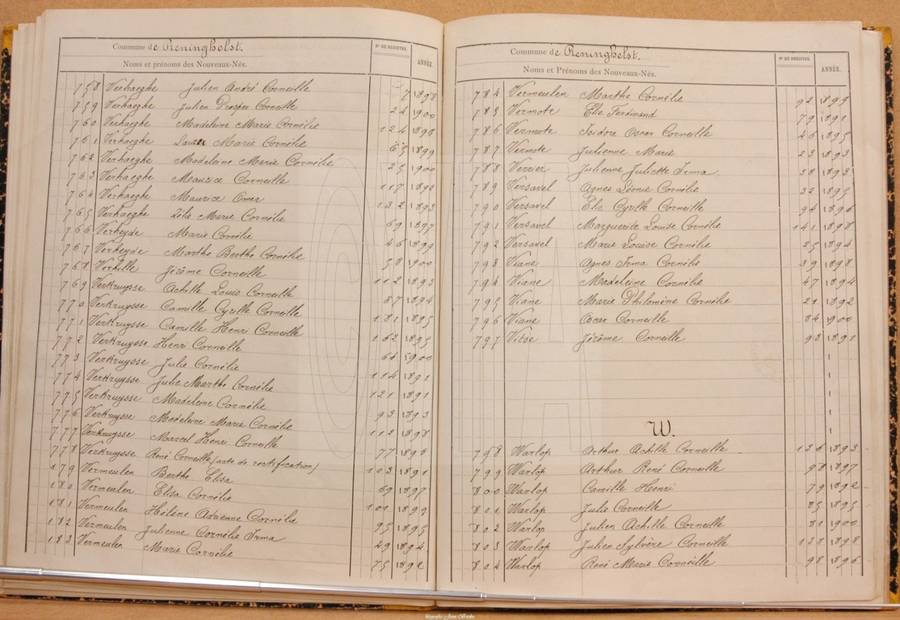 Commune de Reninghelst.
Noms et prénoms des Nouveaux-Nés.
Nº DE REGISTRE.
ANNÉE.
758 Verhaeghe Julien André Corneille 7 1898
759 Verhaeghe Julien Prosper Corneille 24 1900
760 Verhaeghe Madeleine Marie Cornélie 124 1898
761 Verhaeghe Marie Cornélie 65 1899
762 Verhaeghe Madeleine Marie Cornélie 25 1900
763 Verhaeghe Maurice Corneille 117 1890
764 Verhaeghe Maurice Omer 132 1893
765 Verhaeghe Zélie Marie Cornélie 69 1897
766 Verheyde Marie Cornélie 46 1899
767 Verheyde Marthe Berthe Cornélie 58 1900
768 Verhille Jérôme Corneille 112 1893
769 Verkruysse Achille Louis Corneille 87 1894
770 Verkruysse Camille Cyrille Corneille 131 1895
771 Verkruysse Camille Henri Corneille 162 1895
772 Verkruysse Henri Corneille 64 1900
773 Verkruysse Julie Cornélie 114 1891
774 Verkruysse Julie Marthe Cornélie 121 1891
775 Verkruysse Madeleine Cornélie 93 1893
776 Verkruysse Madeleine Marie Cornélie 112 1898
777 Verkruysse Marcel Henri Corneille 77 1898
778 Verkruysse René Corneille (acte de rectification) 103 1891
779 Vermeulen Berthe Elisa 69 1897
780 Vermeulen Elisa Cornélie 100 1893
781 Vermeulen Hélène Adrienne Cornélie 95 1895
782 Vermeulen Julienne Cornélie Irma 29 1894
783 Vermeulen Marie Cornélie 75 1892
Commune de Reninghelst.
Noms et Prénoms des Nouveaux-Nés.
Nº DE REGISTRE.
ANNÉE.
784 Vermeulen Marthe Cornélie 92 1899
785 Vermote Elie Ferdinand 79 1891
786 Vermote Isidore Oscar Corneille 46 1895
787 Vermote Julienne Marie 23 1893
788 Verrier Julienne Juliette Irma 38 1893
789 Versavel Agnès Léonie Cornélie 32 1895
790 Versavel Elie Cyrille Corneille 94 1896
791 Versavel Marguerite Louise Cornélie 141 1898
792 Versavel Marie Louise Cornélie 35 1894
793 Viane Agnès Irma Cornélie 39 1898
794 Viane Madeleine Cornélie 47 1894
795 Viane Marie Philomène Cornélie 21 1892
796 Viane Oscar Corneille 34 1900
797 Vitse Jérôme Corneille 93 1891
W.
798 Warlop Arthur Achille Corneille 136 1893
799 Warlop Arthur René Corneille 98 1897
800 Warlop Camille Henri 79 1892
801 Warlop Julie Corneille 35 1895
802 Warlop Julien Achille Corneille 31 1900
803 Warlop Julien Sylvère Corneille 138 1898
804 Warlop René Marie Corneille 98 1896